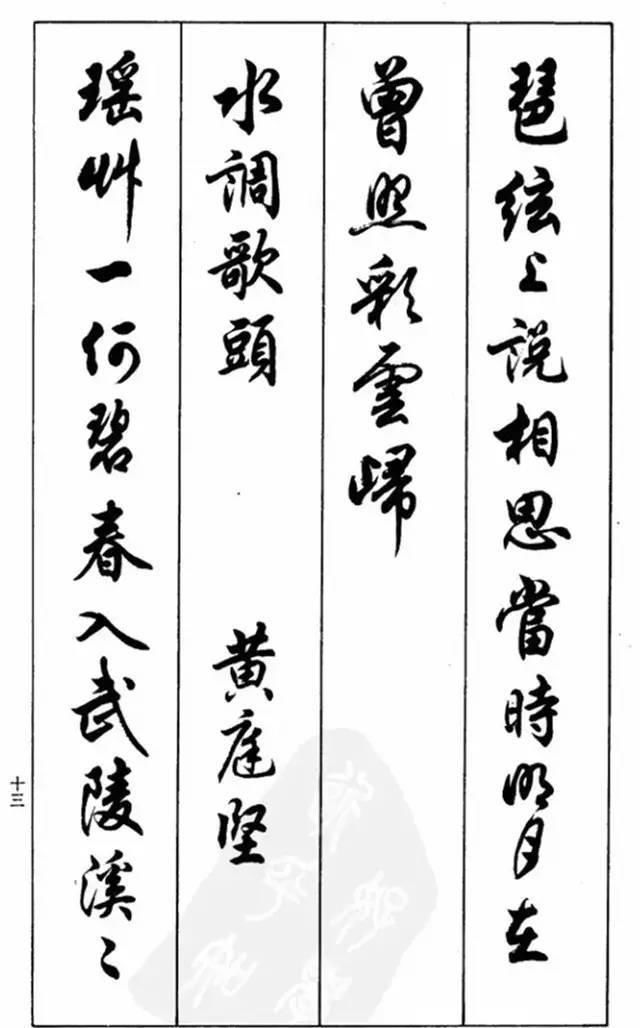 琶絃上說相思當時明月在
曾照彩雲歸
水調歌頭　黃庭堅
瑶艸一何碧春入武陵溪〻
十三